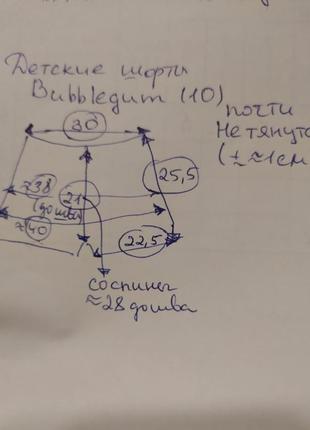 Детские шорты
Bubblegum (10)
почти
Не тянутс
(± ≈1см
30
25,5
≈38
21
(до шва)
≈40
22,5
со спины
≈28 до шва